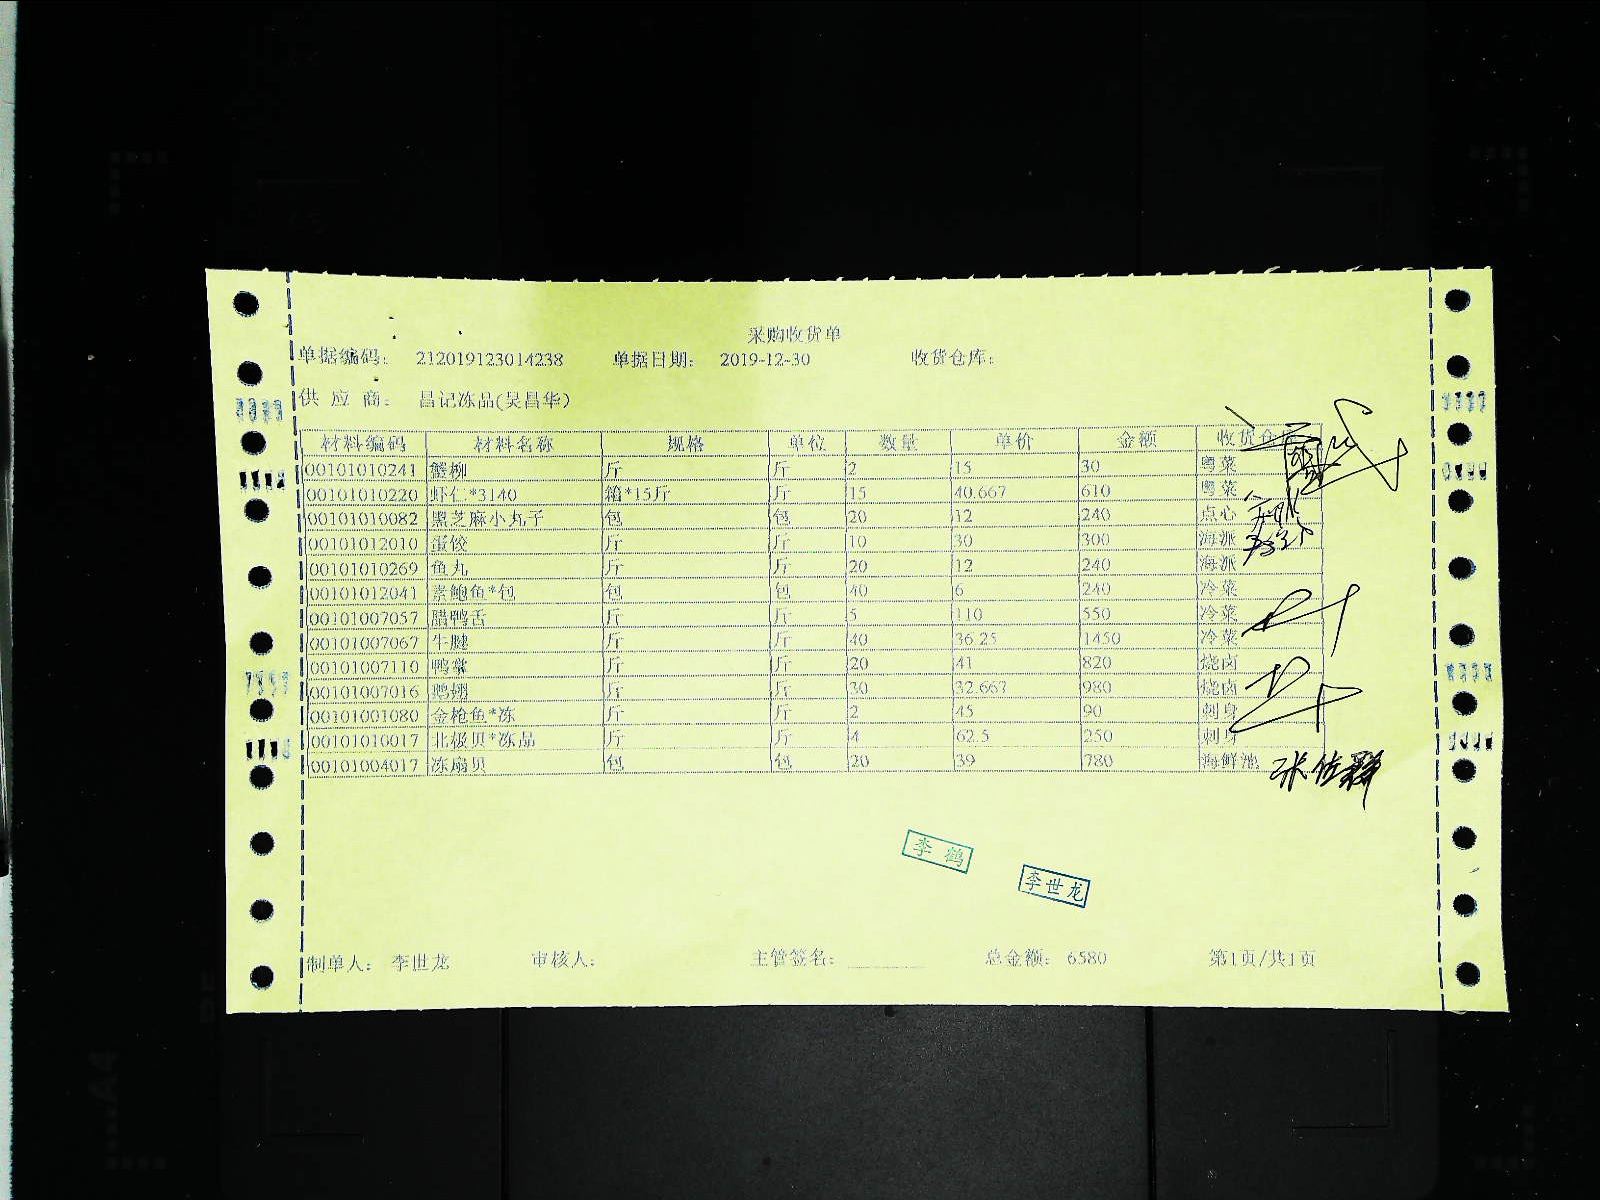 采购收货单
单据编码： 212019123014238 单据日期： 2019-12-30 收货仓库：
供 应 商： 昌记冻品(吴昌华)
材料编码 材料名称 规格 单位 数量 单价 金额 收货仓库
00101010241 蟹柳 斤 斤 2 15 30 粤菜
00101010220 虾仁*3140 箱*15斤 斤 15 40.667 610 粤菜
00101010082 黑芝麻小丸子 包 包 20 12 240 点心
00101012010 蛋饺 斤 斤 10 30 300 海派
00101010269 鱼丸 斤 斤 20 12 240 海派
00101012041 素鲍鱼*包 包 包 40 6 240 冷菜
00101007057 腊鸭舌 斤 斤 5 110 550 冷菜
00101007067 牛腱 斤 斤 40 36.25 1450 冷菜
00101007110 鸭掌 斤 斤 20 41 820 烧卤
00101007016 鹅翅 斤 斤 30 32.667 980 烧卤
00101001080 金枪鱼*冻 斤 斤 2 45 90 刺身
00101010017 北极贝*冻品 斤 斤 4 62.5 250 刺身
00101004017 冻扇贝 包 包 20 39 780 海鲜池
李鹤
李世龙
制单人： 李世龙 审核人： 主管签名： 总金额： 6580 第1页/共1页